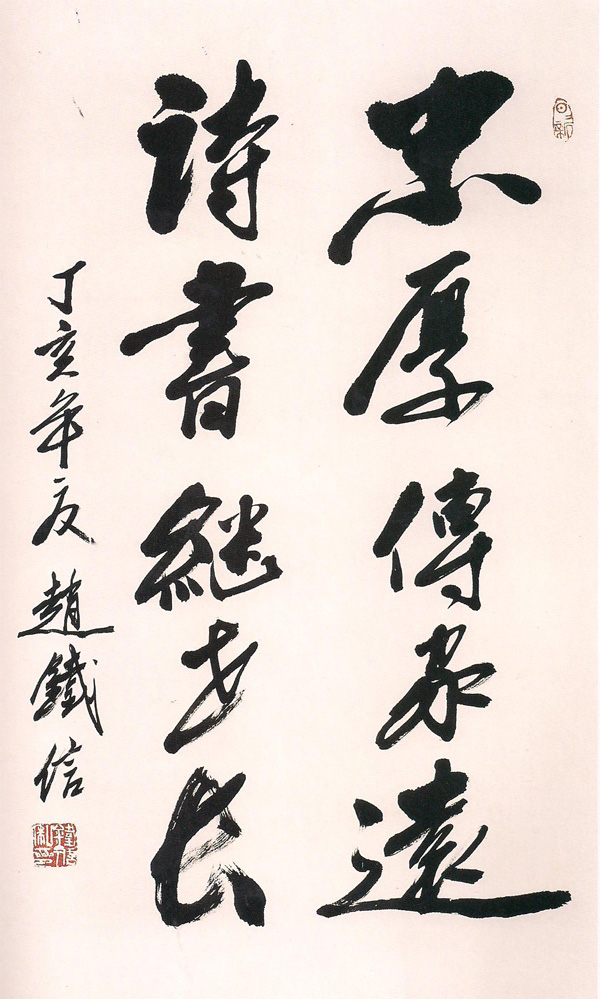 忠厚傳家遠
詩書繼世長
丁亥年夏趙鐵信